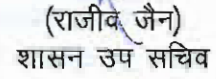 (राजीव जैन)
शासन उप सचिव